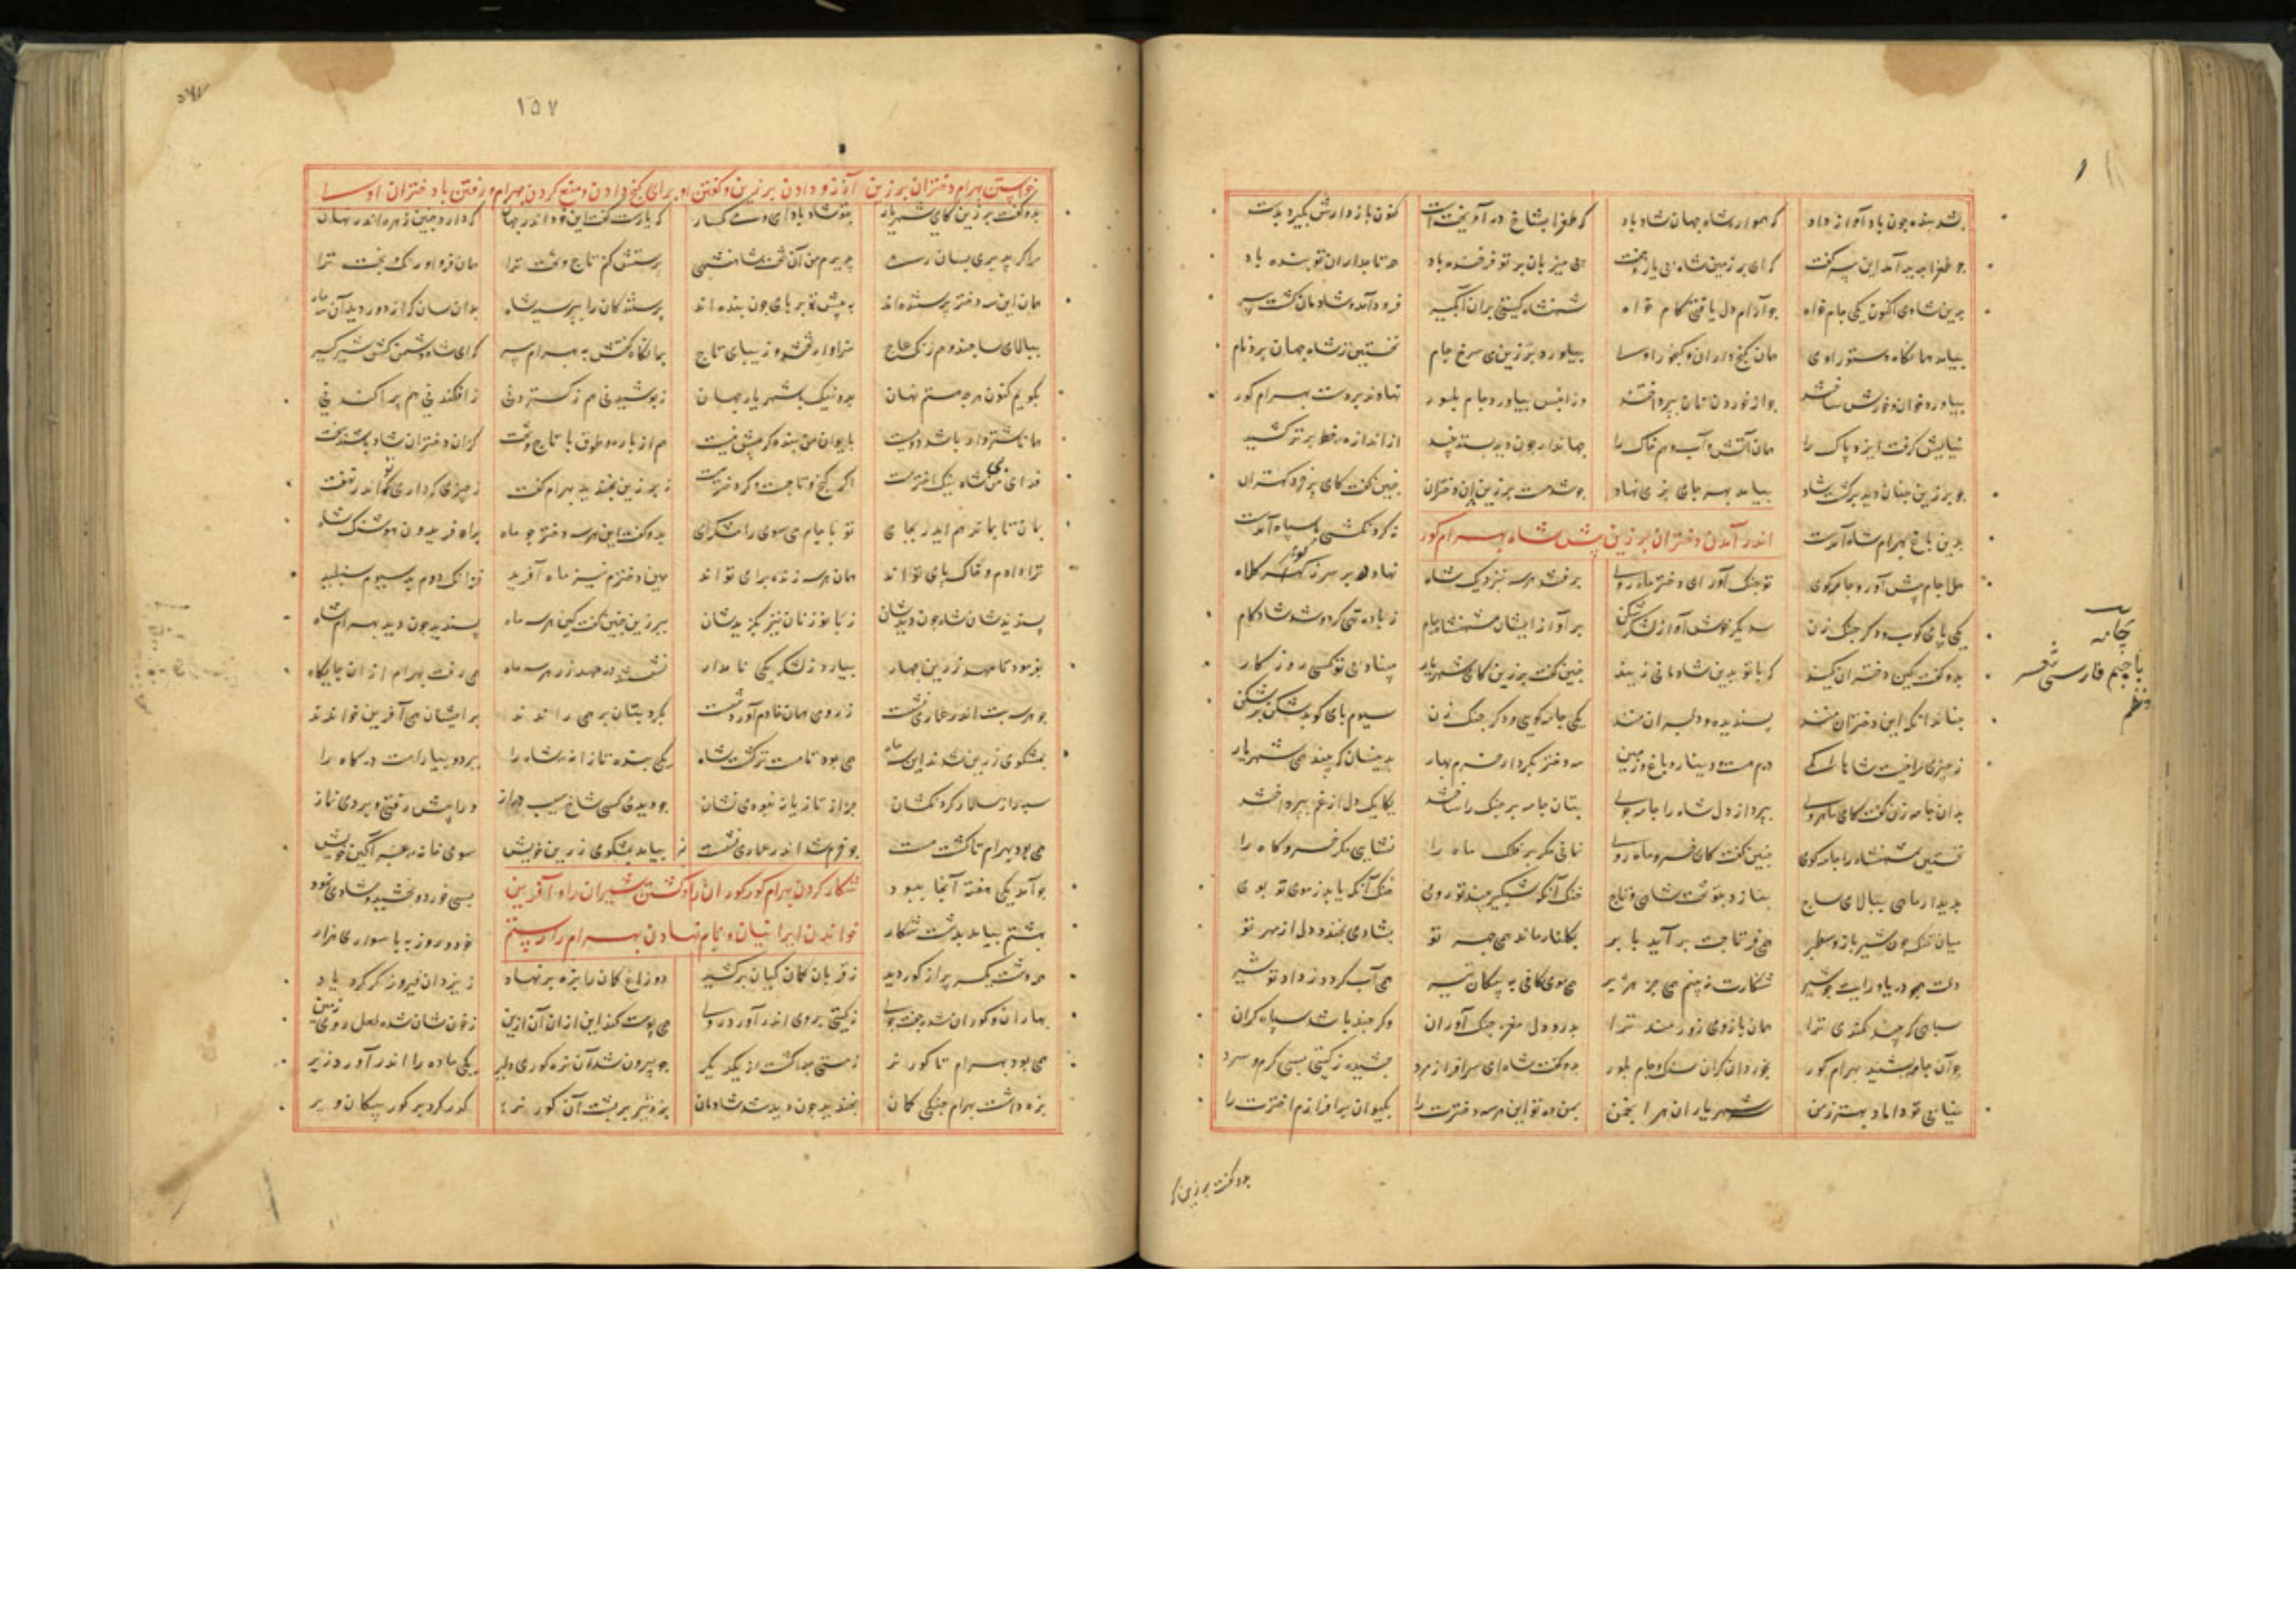 شد بنده چون باد آواز داد که هموار شاه جهان شاد باد که طغرا بشاخی در آویختست کنون بازدارش بگیرد بدست
چو طغرا پدید آمد این پیر گفت که ای بر زمین شاه بی یار و جفت پی میزبان بر تو فرخنده باد همه تاجداران تو بنده باد
برین شادی اکنون یکی جام خواه چو آرام دل یافتی کام خواه شهنشاه گیتی بران آبگیر فرود آمد و شادمان گشت پیر
بیامد همانگاه دستور اوی همان گنج داران و گنجور اوی بیاورد برزین می سرخ جام نخستین ز شاه جهان برد نام
بیاورد خوان و خورش ساختند چو از خوردن نان بپرداختند وزان پس بیاورد جام بلور نهادند بر دست بهرام گور
جهاندار چون دید بستد نبید از اندازه خط برتر کشید
چو برزین چنان دید برگشت شاد بیامد بهر جای خمی نهاد چو شد مست برزین بدان دختران چنین گفت کای پر خرد کهتران
بدین باغ بهرام شاه آمدست نه گردنکشی با سپاه آمدست
اندر آمدن دختران برزین پیش شاه بهرام گور
هلا جام پیش آور و چامه گوی تو چنگ آور ای دختر ماه روی برفتند هر سه بنزدیک شاه نهاده بسر بر ز گوهر کلاه
یکی پای کوب و دگر چنگ زن سدیگر خوش آواز لشکرشکن بر آواز ایشان شهنشاه جام ز باده تهی کرد و شد شادکام
بدو گفت کین دختران کیند که با تو بدین شادمانی زیند چنین گفت برزین که ای شهریار مبیناد بی تو کسی روزگار
چنان دان که این دختران منند پسندیده و دلبران منند یکی چامه گوی و دگر چنگ زن سیوم پای کوبد شکن بر شکن
درم هست و دینار و باغ و زمین سه دختر بکردار خرم بهار بدینسان که بیند همی شهریار
بدان چامه زن گفت کای ماهروی بپرداز دل شاه را چامه جوی بتان چامه بر چنگ را ساختند یکایک دل از غم بپرداختند
نخستین شهنشاه را چامه گوی چنین گفت کای خسرو ماه روی نمانی مگر بر فلک ماه را نشایی مگر خسرو گاه را
بدیدار ماهی ببالای ساج بنازد بتو تخت شاهی و تاج خنک آنکه شبگیر بیند تو روی خنک آنکه یابد ز موی تو بوی
میان تنگ چون شیر و بازو سطبر همی فر تاجت بر آید بابر بگلنار ماند همی چهر تو بشادی بخندد دل از مهر تو
دلت همچو دریا و رایت چو شیر شکارت نبینم همی جز هژیر همی موی کافی به پیکان تیر همی آب گردد ز داد تو شیر
سپاهی که بیند کمندی ترا همان بازوی زورمند ترا بدرد دل و مغز جنگ آوران وگر چند باشد سپاه گران
چو آن چامه بشنید بهرام گور بخورد آن گران سنگ جام بلور بدو گفت شاه ای سرافراز مرد چشیده ز گیتی بسی گرم و سرد
نیابی تو داماد بهتر ز من شهریاران سر انجمن بمن ده تو این هر سه دخترت را بکیوان برافرازم اخترت را
بدو گفت برزین
چامه
با جیم فارسی شعر
و نظم
۱۵۷
خواستن بهرام دختران برزین آرزو دادن برزین و گفتن او برای گنج دادن و منع کردن بهرام و رفتن با دختران او
بدو گفت برزین که ای شهریار بتو شاد بادا می و میگسار که یارست گفت این خود اندر جهان که دارد چنین زهره اندر نهان
مرا گر پذیری بسان رهی پذیرم من آن تخت شاهنشهی پرستش کنم تاج و تخت ترا همان فر و اورنگ و بخت ترا
همان این سه دختر پرستنده اند به پیش تو بر پای چون بنده اند پرستندگان را بپرسید شاه بدان سان که از دور دید آن سه ماه
ببالای ساجند و همرنگ عاج سزاوار تخت و زیبای تاج همانگاه گفتش به بهرام پیر که ای شاه دشمن کش شیرگیر
بگویم کنون هر چه هستم نهان بد و نیک با شهریار جهان ز پوشیدنی هم ز گستردنی ز افکندنی هم پراکندنی
همانا شتروار باشد دویست بایوان من بنده گر بیش نیست هم از یاره و طوق با تاج و تخت کزان دختران شاد باشند بخت
ز برزین بخندید بهرام و گفت ز چیزی که داری تو اندر نهفت
بمان تا بماند هم ایدر بجای تو با جام می سوی رامش گرای بدو گفت این هر سه دختر چو ماه براه فریدون هوشنگ شاه
ترا دادم و خاک پای تو اند همان هر سه زنده برای تو اند مهین دخترم نیز ماه آفرید فرانک دوم بد سیوم شنبلید
پسندیدشان شاه چون دیدشان ز بانو زنان نیز بگزیدشان ببرزین چنین گفت کین هر سه ماه پسندید چون دید بهرام شاه
بفرمود تا مهد زرین چهار بیارد ز لشکر یکی نامدار نشستند در مهد زر هر سه ماه همی رفت بهرام ازان جایگاه
چو هر سه بت اندر عماری نشست ز رومی همان خادم آورد شست گرد بتان بر همی راندند بر ایشان همی آفرین خواندند
بمشکوی زرین شدند این سه ماه همی بود تا مست تر گشت شاه یکی بنده تازانه شاه را ببرد و بیاراست درگاه را
سپه را ز سالار گردنکشان جز از تازیانه نبودی نشان چو دیدی کسی شاخ شیب دراز دوان پیش رفتی و بردی نماز
همی بود بهرام تا گشت مست چو خرم شد اندر عماری نشست بیامد بمشکوی زرین خویش سوی خانه عنبر آگین خویش
چو آمد یکی هفته آنجا ببود بسی خورد و بخشید و شادی نمود
شکار کردن بهرام گور گوران را و کشتن شیران را و آفرین
خواندن ایرانیان و نام نهادن بهرام را
بهشتم بیامد بدشت شکار خود و روزبه با سواری هزار
همه دشت یکسر پر از گور دید ز قربان کمان کیان برکشید دو زاغ کمان را بزه بر نهاد ز یزدان پیروزگر کرد یاد
بهاران و گوران شده جفت جوی ز گیتی بروی اندر آورده روی همی پوست کند این ازان آن ازین ز خون شان شده لعل روی زمین
همی بود بهرام تا گور نر ز مستی جدا گشت از یکدگر چو پیروز شد آن نره گور دلیر یکی ماده را اندر آورد زیر
بزه داشت بهرام جنگی کمان بخندید چون دید شد شادمان بزد تیر بر پشت آن گور نر گذر کرد بر گور پیکان و پر